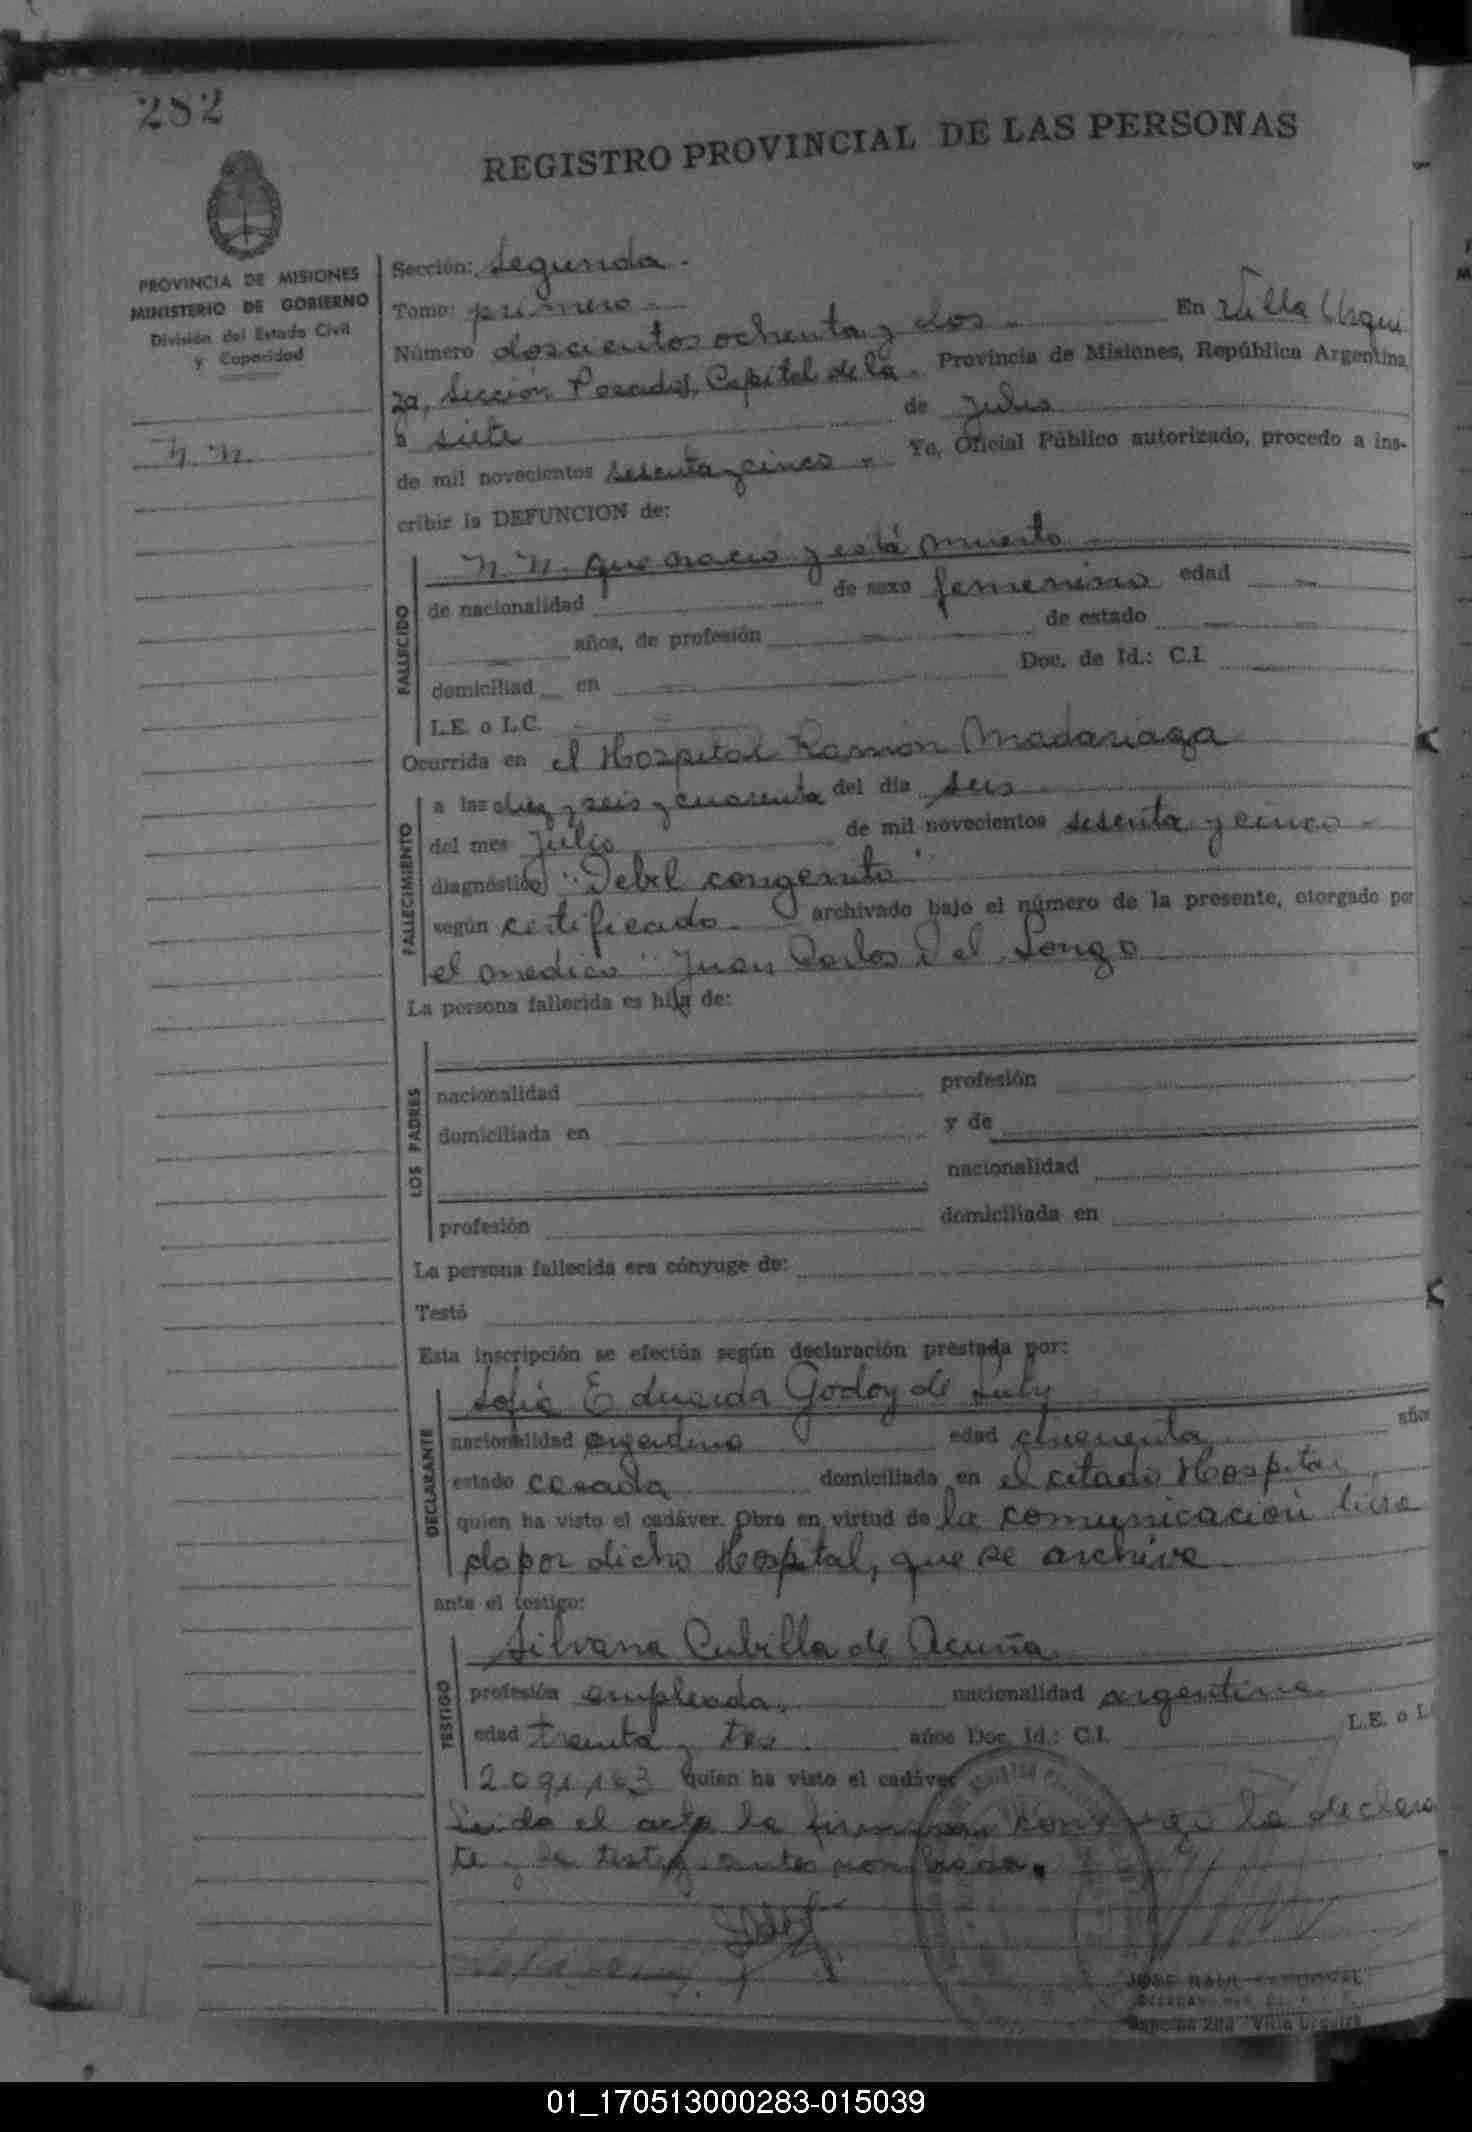 282
REGISTRO PROVINCIAL DE LAS PERSONAS
PROVINCIA DE MISIONES
MINISTERIO DE GOBIERNO
División del Estado Civil
y Capacidad
N. N.
Sección: Segunda.
Tomo: primero
Número doscientos ochenta y dos En Villa Urqui
za, Sección Posadas, Capital de la Provincia de Misiones, República Argentina,
a siete de Julio
de mil novecientos sesenta y cinco Yo, Oficial Público autorizado, procedo a ins-
cribir la DEFUNCION de:
FALLECIDO
N. N. que nació y está muerto
de nacionalidad de sexo femenino edad
años, de profesión de estado
domiciliad en Doc. de Id.: C.I.
L.E. o L.C.
Ocurrida en el Hospital Ramón Madariaga
FALLECIMIENTO
a las diez y seis y cuarenta del día seis
del mes Julio de mil novecientos sesenta y cinco
diagnóstico "Debil congenito"
según certificado archivado bajo el número de la presente, otorgado por
el medico "Juan Carlos Del Longo
La persona fallecida es hija de:
LOS PADRES
nacionalidad profesión
domiciliada en y de
nacionalidad
profesión domiciliada en
La persona fallecida era cónyuge de:
Testó
Esta inscripción se efectúa según declaración prestada por:
DECLARANTE
Sofia Eduarda Godoy de
nacionalidad argentina edad cincuenta años
estado casada domiciliada en el citado Hospital
quien ha visto el cadáver. Obra en virtud de la comunicación
por dicho Hospital, que se archiva
ante el testigo:
TESTIGO
Silvana Cubilla de Acuña
profesión empleada. nacionalidad argentina
edad treinta y tres años Doc. Id.: C.I. L.E. o L.
2.091.163 quien ha visto el cadáver
Leida el acta la firman conmigo la declaran
te y la testigo antes nombrada.
JOSE RAUL SANDOVAL
01_170513000283-015039